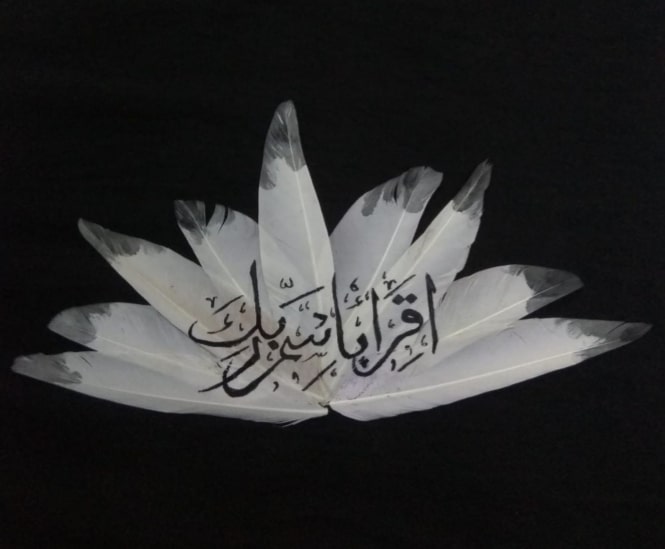 اقرأ باسم ربك